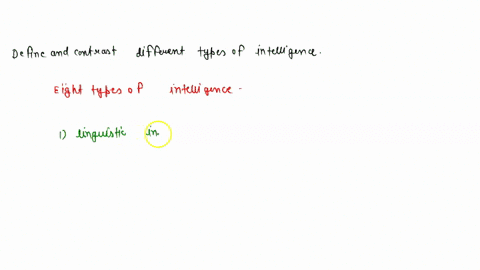 Define and contrast different types of intelligence.
Eight types of intelligence.
1) linguistic in